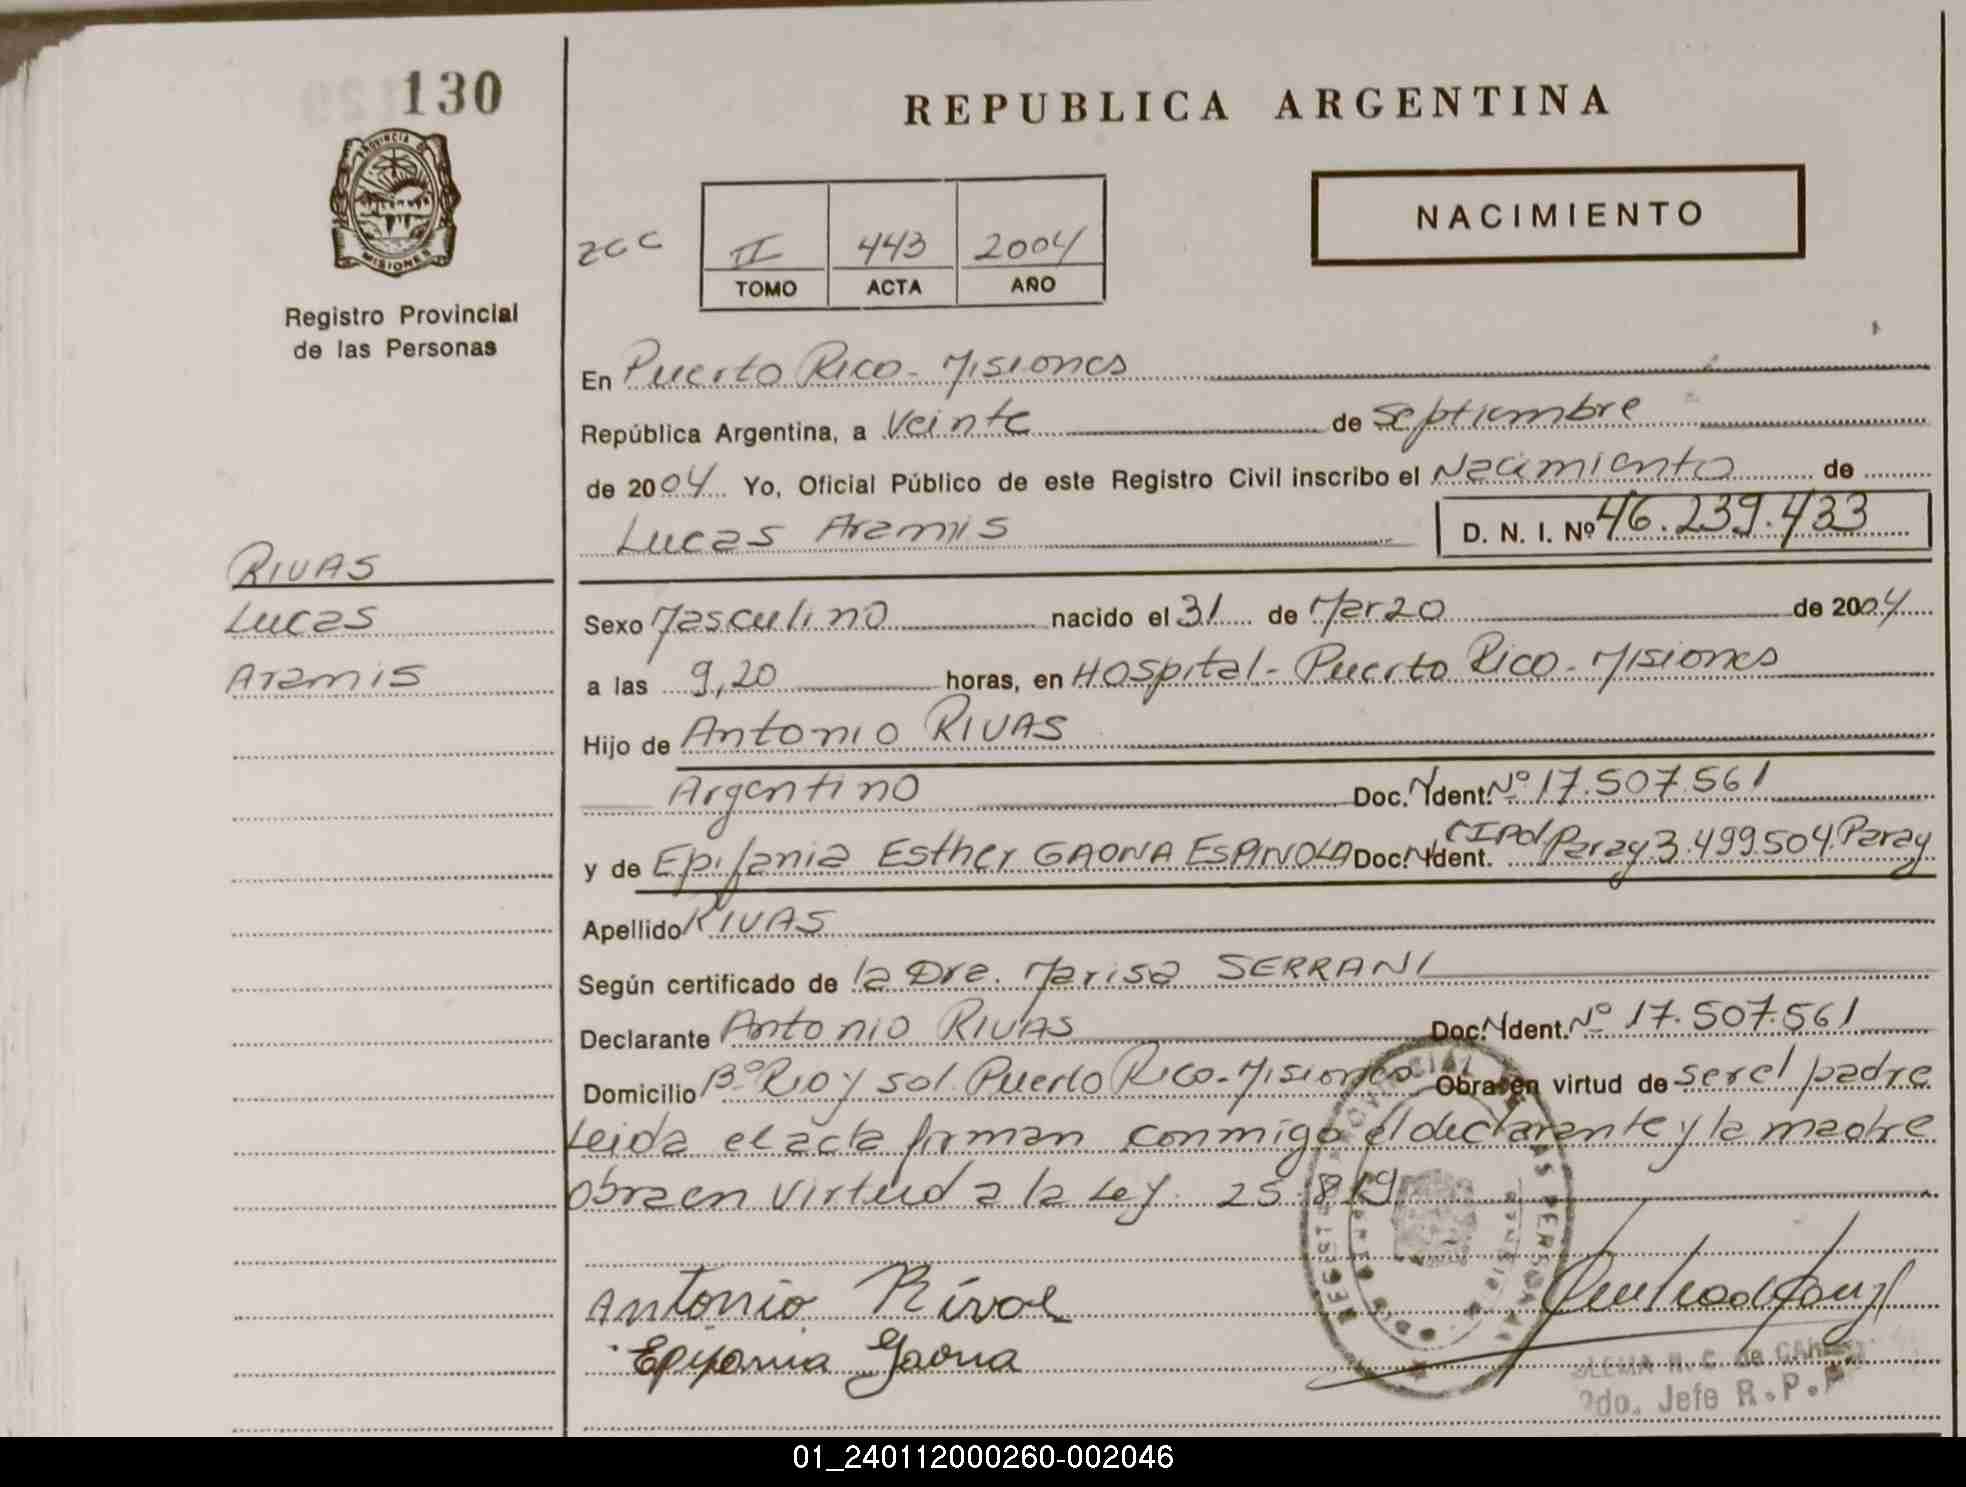 130
REPUBLICA ARGENTINA
PROVINCIA DE
MISIONES
NACIMIENTO
II 443 2004
TOMO ACTA AÑO
Registro Provincial
de las Personas
En Puerto Rico - Misiones
República Argentina, a Veinte de Septiembre
de 2004 Yo, Oficial Público de este Registro Civil inscribo el Nacimiento de
Lucas Aramis D. N. I. Nº 46.239.433
RIVAS
Lucas
Aramis
Sexo Masculino nacido el 31 de Marzo de 2004
a las 9,20 horas, en Hospital - Puerto Rico - Misiones
Hijo de Antonio RIVAS
Argentino Doc. Ident. Nº 17.507.561
y de Epifania Esther GAONA ESPINOLA Doc. Ident. Paray 3.499.504 Paray
Apellido RIVAS
Según certificado de la Dra. Marisa SERRANI
Declarante Antonio RIVAS Doc. Ident. Nº 17.507.561
Domicilio Bº Rio y sol. Puerto Rico - Misiones Obra en virtud de ser el padre
Leida el acta firman conmigo el declarante y la madre
obra en virtud a la Ley 25.819
Antonio Rivas
Epifania Gaona
2do. Jefe R.P.P.
01_240112000260-002046